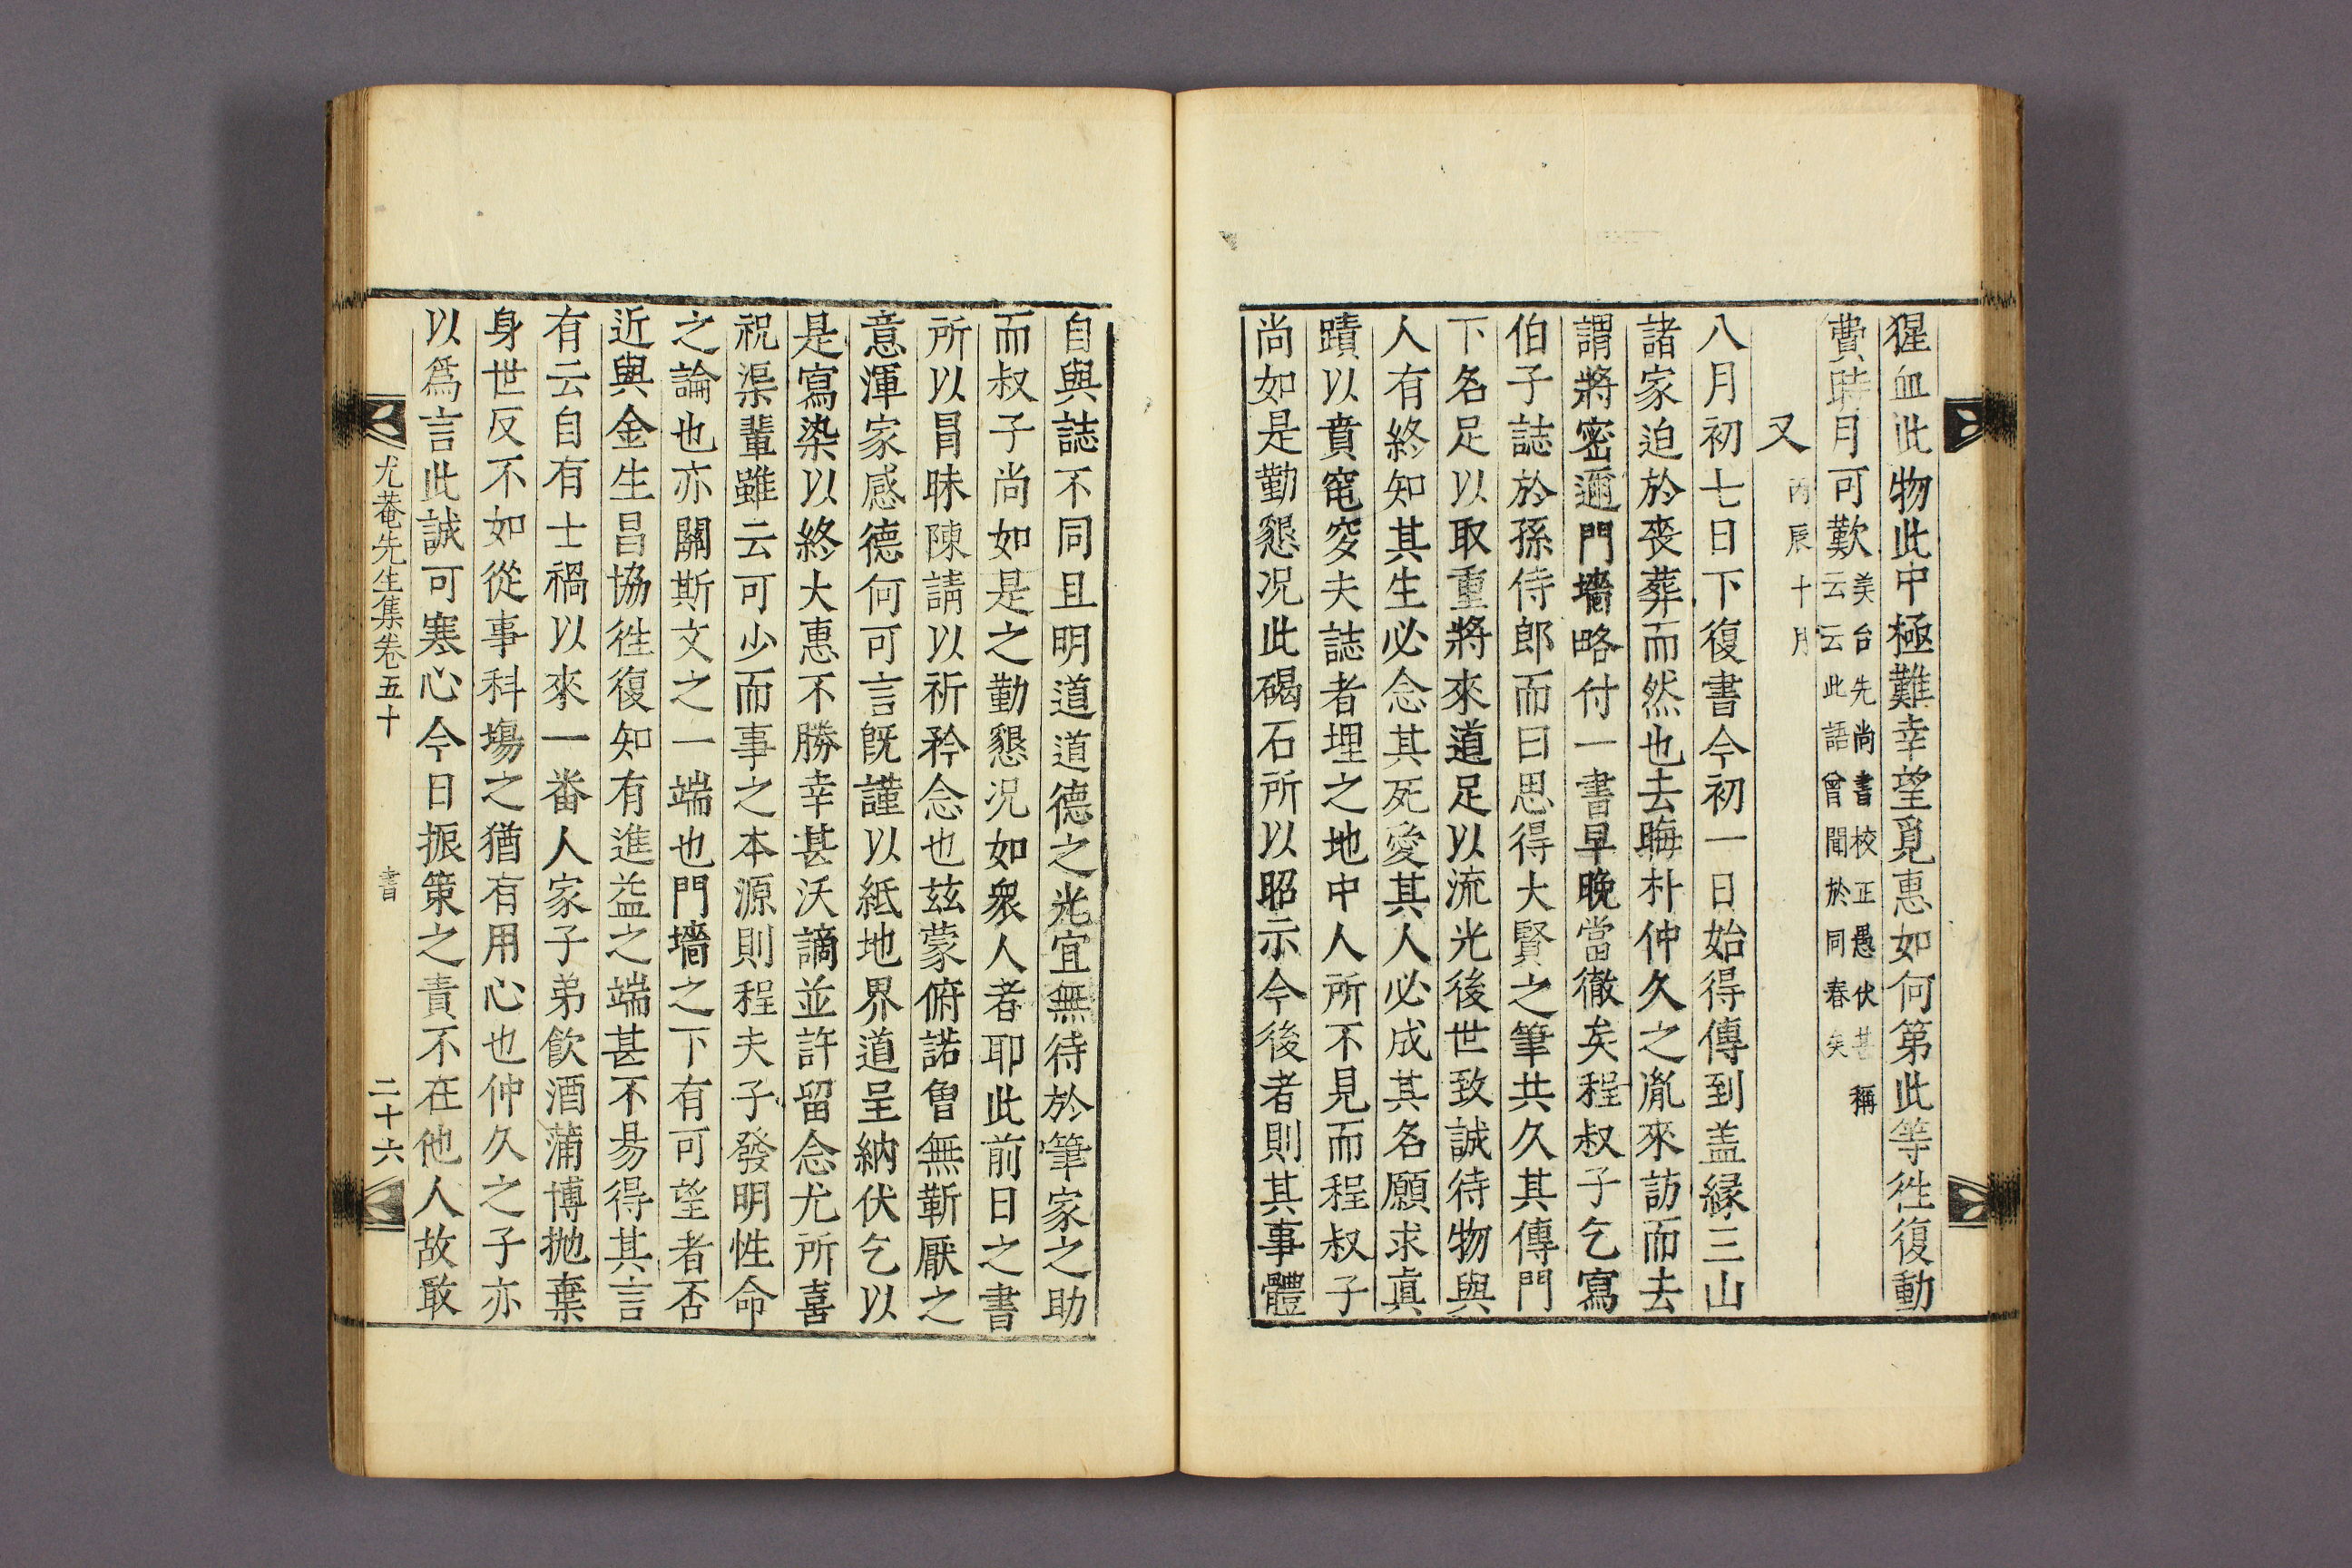 猩血此物此中極難幸望覓惠如何第此等徃復動
費時月可歎美台先尚書校正愚伏甚稱
云云此語曾聞於同春矣
又丙辰十月
八月初七日下復書今初一日始得傳到盖縁三山
諸家迫於丧葬而然也去晦朴仲久之胤來訪而去
謂將密邇門墻略付一書早晚當徹矣程叔子乞寫
伯子誌於孫侍郎而曰思得大賢之筆共久其傳門
下名足以取重將來道足以流光後世致誠待物與
人有終知其生必念其死愛其人必成其名願求眞
蹟以賁窀穸夫誌者埋之地中人所不見而程叔子
尚如是勤懇况此碣石所以昭示今後者則其事體
自與誌不同且明道道德之光宜無待於筆家之助
而叔子尚如是之勤懇况如衆人者耶此前日之書
所以冐昧陳請以祈矜念也玆蒙俯諾曾無靳厭之
意渾家感德何可言旣謹以紙地界道呈納伏乞以
是寫染以終大惠不勝幸甚沃謫並許留念尤所喜
祝渠輩雖云可少而事之本源則程夫子發明性命
之論也亦關斯文之一端也門墻之下有可望者否
近與金生昌協徃復知有進益之端甚不易得其言
有云自有士禍以來一番人家子弟飮酒蒲博抛棄
身世反不如從事科塲之猶有用心也仲久之子亦
以爲言此誠可寒心今日振策之責不在他人故敢
尤菴先生集卷五十 書 二十六